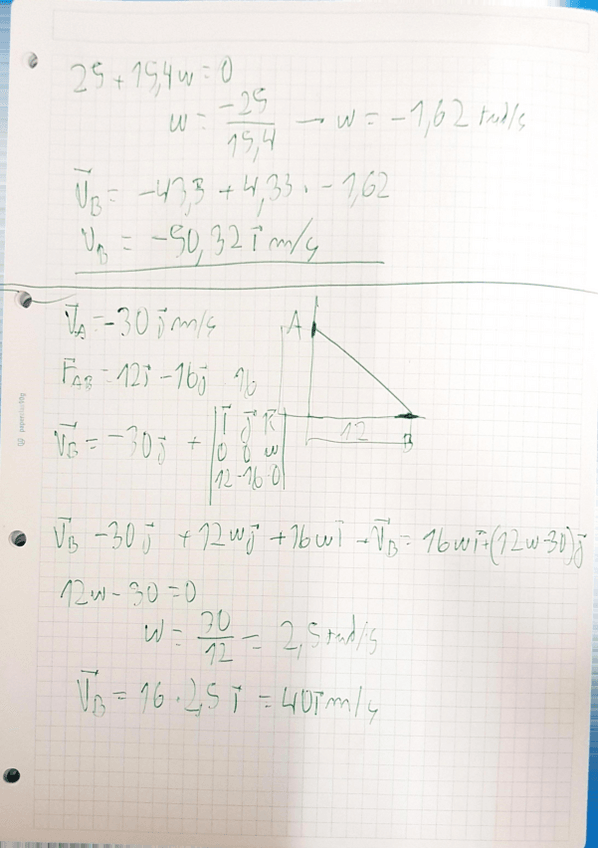 25 + 15,4w = 0
w = -25/15,4 → w = -1,62 rad/s
V⃗B = -43,3 + 4,33 · -1,62
VB = -50,32 i⃗ m/s
V⃗A = -30 j⃗ m/s
A
r⃗AB = 12i⃗ - 16j⃗
16
V⃗B = -30j⃗ + |i⃗ j⃗ k⃗|
|0 0 w|
|12 -16 0|
12
B
V⃗B -30j⃗ + 12wj⃗ + 16wi⃗ → V⃗B = 16wi⃗+(12w-30)j⃗
12w - 30 = 0
w = 30/12 = 2,5 rad/s
V⃗B = 16 · 2,5 i⃗ = 40i⃗ m/s